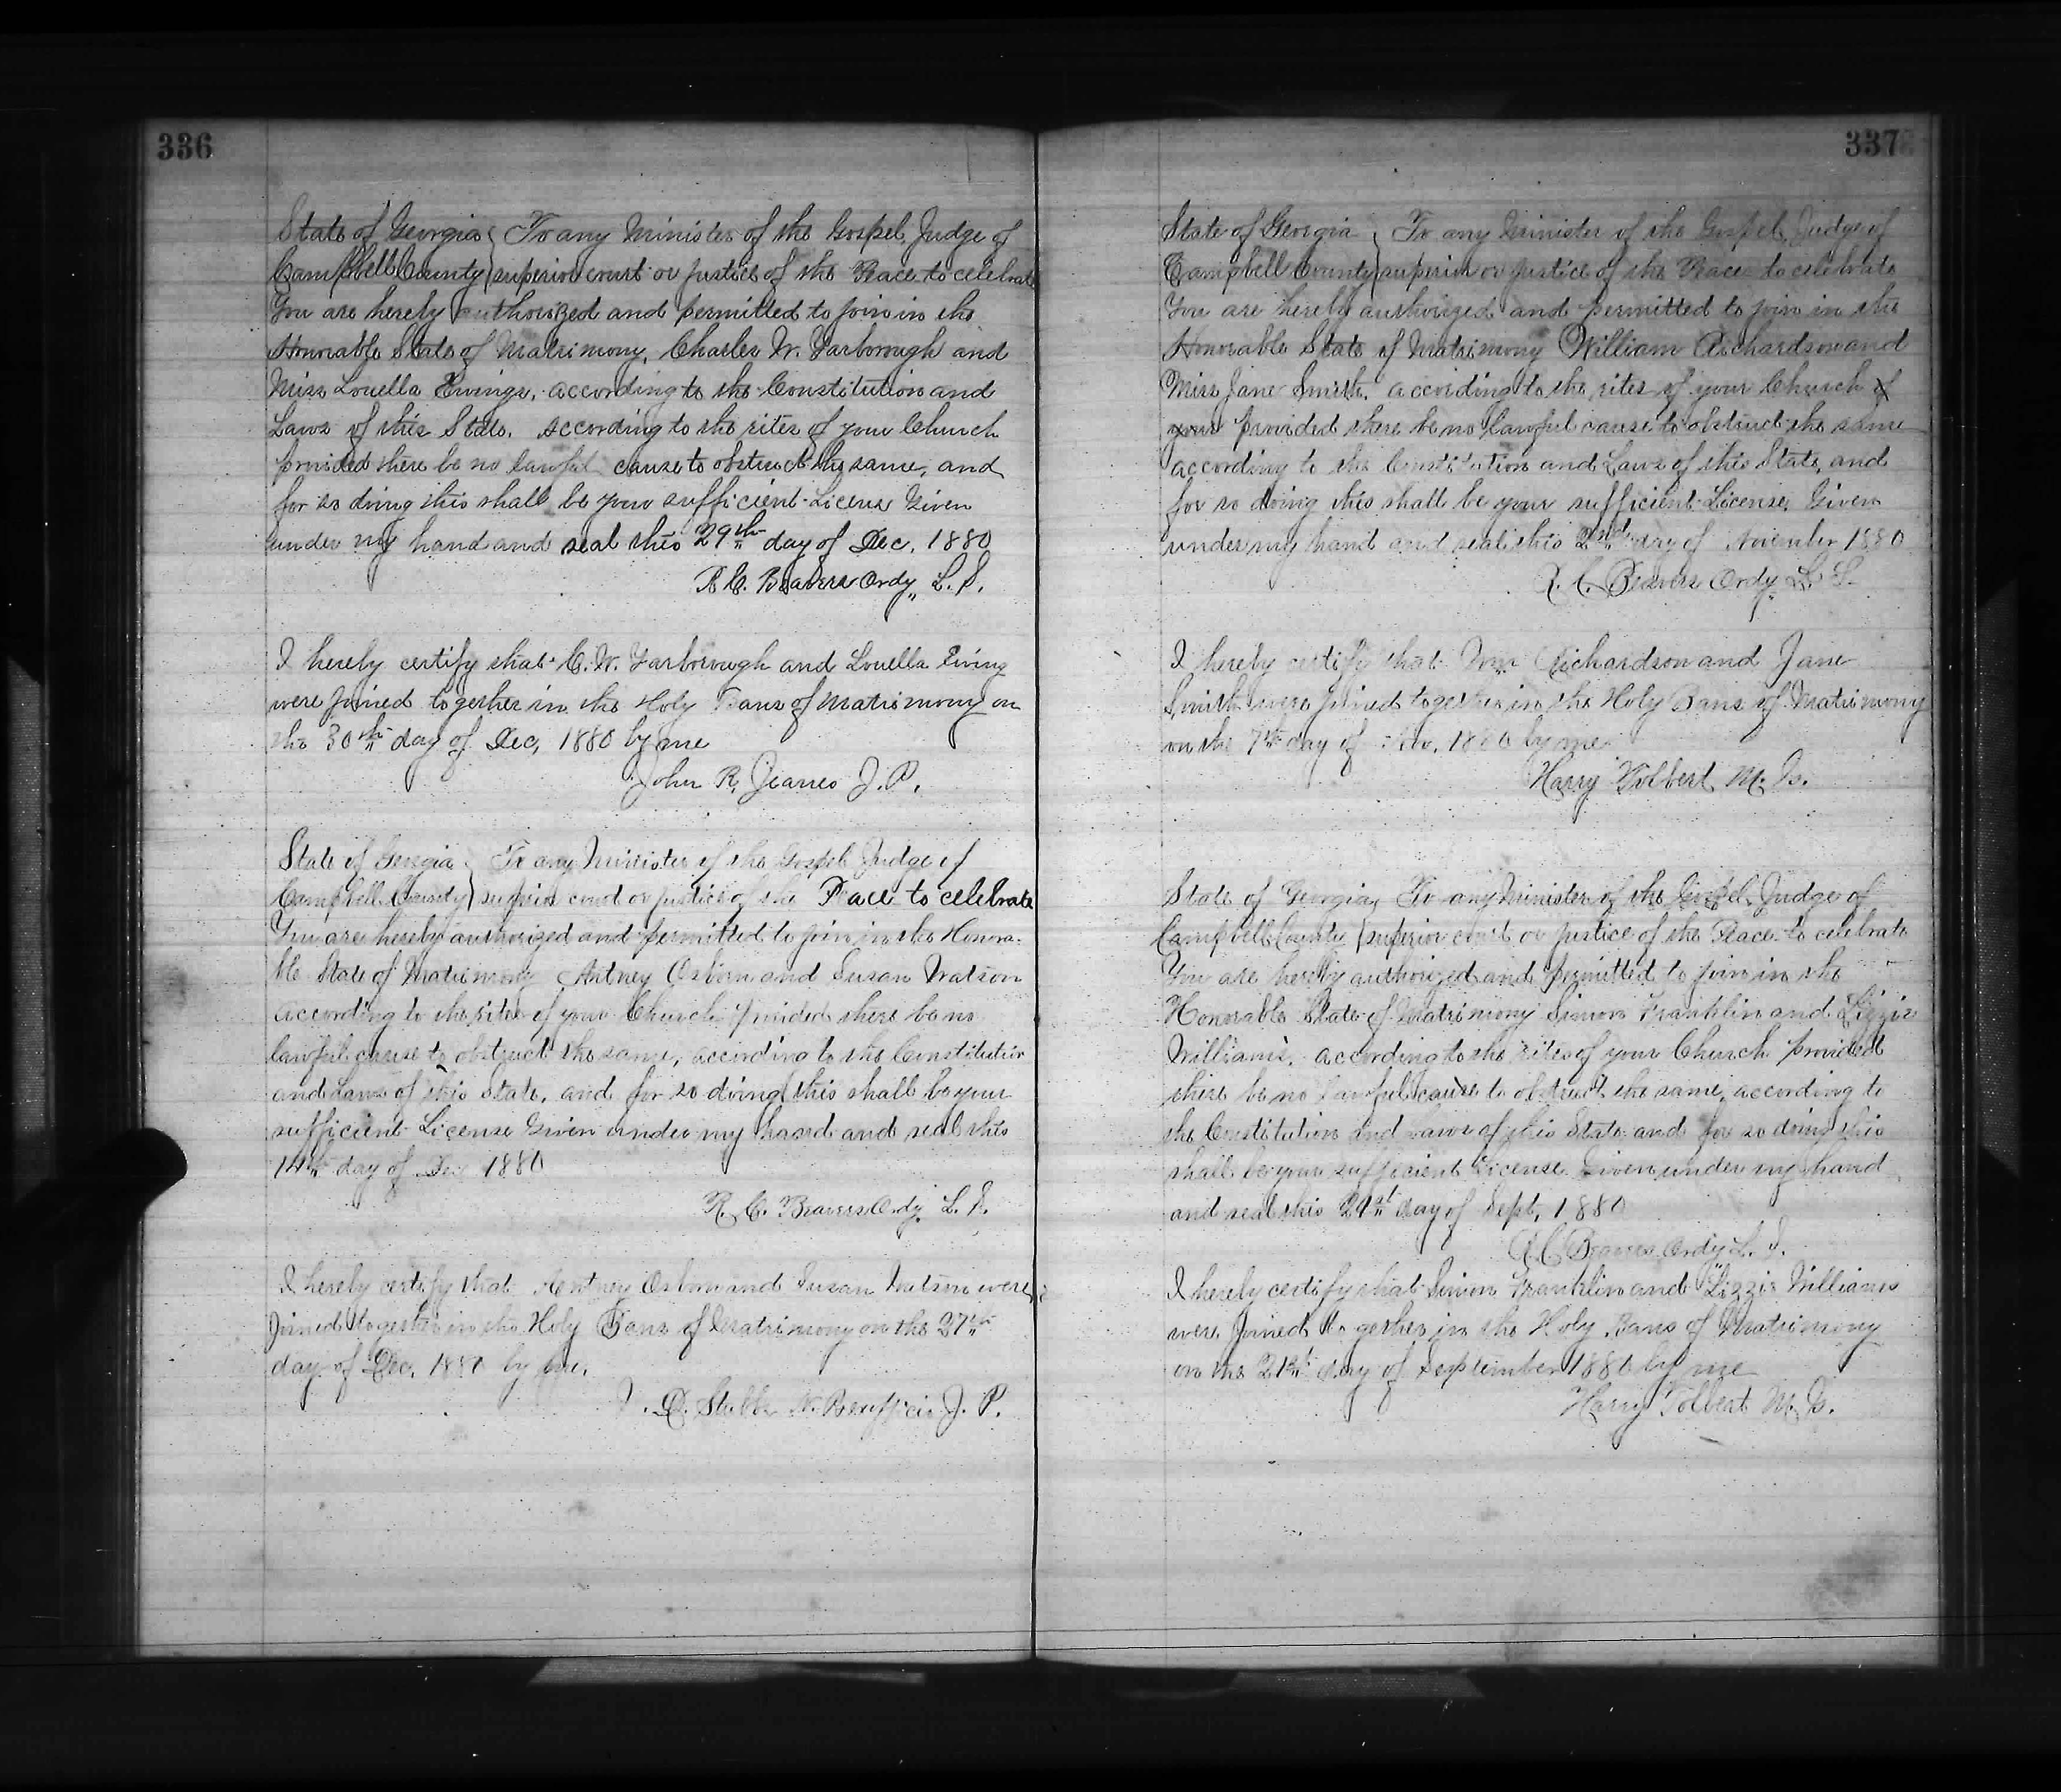 336
State of Georgia } To any Minister of the Gospel, Judge of
Campbell County } superior court or justice of the Peace to celebrate
You are hereby authorized and permitted to join in the
Honorable State of Matrimony, Charles W. Yarborough and
Miss Louella Ewings, according to the Constitution and
Laws of this State. according to the rites of your Church
provided there be no lawful cause to obstruct the same, and
for so doing this shall be your sufficient License Given
under my hand and seal this 29th day of Dec. 1880
R. C. Beavers Ordy L. S.
I hereby certify that C. W. Yarborough and Louella Ewing
were joined together in the Holy Bans of Matrimony on
the 30th day of Dec, 1880 by me
John R. Jeanes J. P.
State of Georgia } To any Minister of the Gospel Judge of
Campbell County } superior court or justice of the Peace to celebrate
You are hereby authorized and permitted to join in the Honora-
ble State of Matrimony Antney Osborn and Susan Watson
according to the rites of your Church provided there be no
lawful cause to obstruct the same, according to the Constitution
and Laws of this State, and for so doing this shall be your
sufficient License Given under my hand and seal this
14th day of Dec 1880
R. C. Beavers Ordy. L. S.
I hereby certify that Antney Osborn and Susan Watson were
Joined together in the Holy Bans of Matrimony on the 27th
day of Dec. 1880 by me.
D. Stubbs N. P. & exofficio J. P.
337
State of Georgia } To any Minister of the Gospel, Judge of
Campbell County } superior or justice of the Peace to celebrate
You are hereby authorized and permitted to join in the
Honorable State of Matrimony William Richardson and
Miss Jane Smith. according to the rites of your Church of
your provided there be no lawful cause to obstruct the same
according to the Constitution and Laws of this State, and
for so doing this shall be your sufficient License, Given
under my hand and seal this 2nd day of November 1880
R. C. Beavers Ordy L. S.
I hereby certify that Wm Richardson and Jane
Smith were joined together in the Holy Bans of Matrimony
on the 7th day of Nov. 1880 by me
Harry Tolbert M. G.
State of Georgia } To any Minister of the Gospel, Judge of
Campbell County } superior court or justice of the Peace to celebrate
You are hereby authorized and permitted to join in the
Honorable State of Matrimony Simon Franklin and Lizzie
Williams. according to the rites of your Church provided
there be no lawful cause to obstruct the same, according to
the Constitution and Laws of this State and for so doing this
shall be your sufficient License Given under my hand
and seal this 21st day of Sept, 1880
R. C. Beavers Ordy L. S.
I hereby certify that Simon Franklin and Lizzie Williams
were Joined together in the Holy Bans of Matrimony
on the 21st day of September 1880 by me
Harry Tolbert M. G.